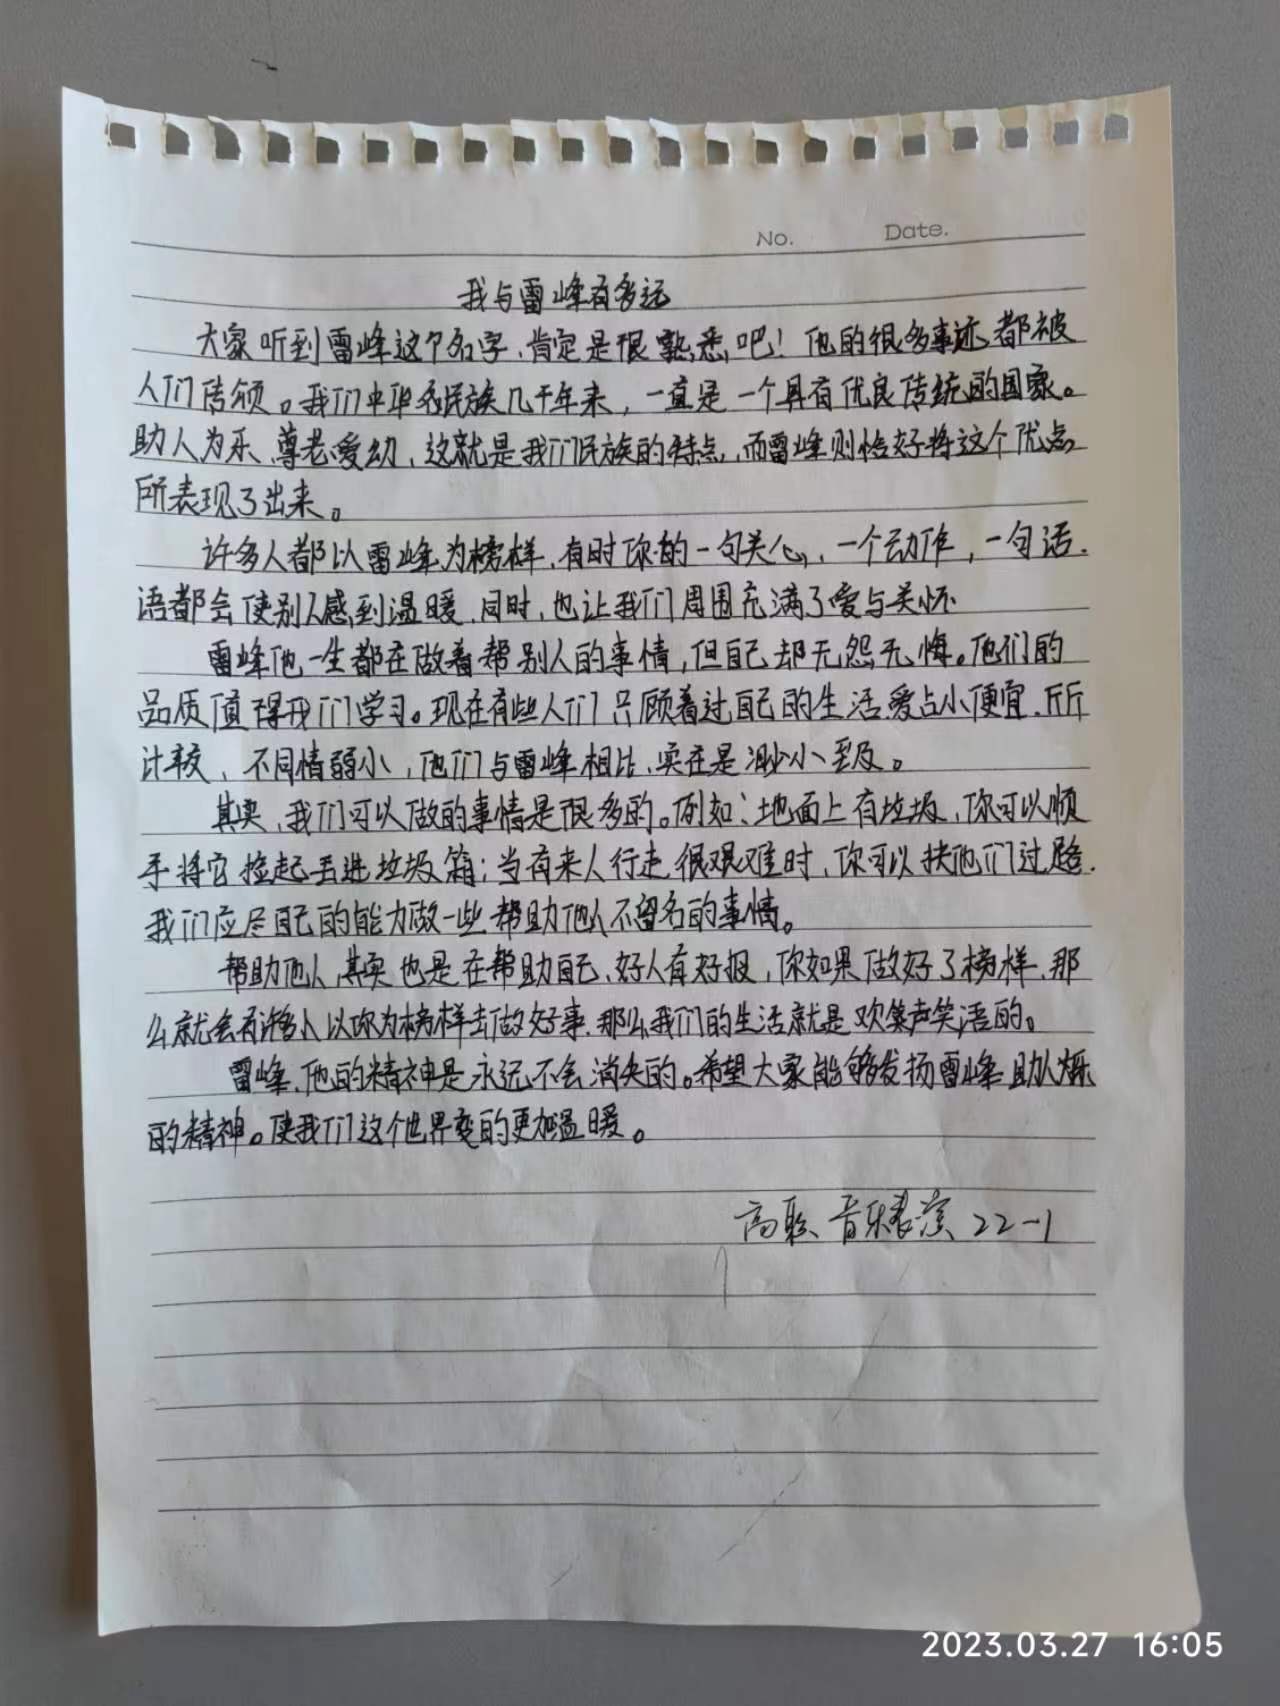 No. Date.
我与雷峰有多远
大家听到雷峰这个名字,肯定是很熟悉吧!他的很多事迹都被
人们传颂。我们中华民族几千年来,一直是一个具有优良传统的国家。
助人为乐、尊老爱幼,这就是我们民族的特点,而雷峰则恰好将这个优点
所表现了出来。
许多人都以雷峰为榜样,有时你的一句关心,一个动作,一句话
语都会使别人感到温暖,同时,也让我们周围充满了爱与关怀
雷峰他一生都在做着帮别人的事情,但自己却无怨无悔。他们的
品质值得我们学习。现在有些人们只顾着过自己的生活爱占小便宜,斤斤
计较,不同情弱小,他们与雷峰相比,实在是渺小至及。
其实,我们可以做的事情是很多的。例如:地面上有垃圾,你可以顺
手将它捡起丢进垃圾箱;当有来人行走很艰难时,你可以扶他们过路.
我们应尽自己的能力做一些帮助他人不留名的事情。
帮助他人,其实也是在帮助自己,好人有好报,你如果做好了榜样,那
么就会有许多人以你为榜样去做好事,那么我们的生活就是欢笑声笑语的。
雷峰,他的精神是永远不会消失的。希望大家能够发扬雷峰助人乐
的精神。使我们这个世界变的更加温暖。
高职 音乐表演 22-1
2023.03.27 16:05